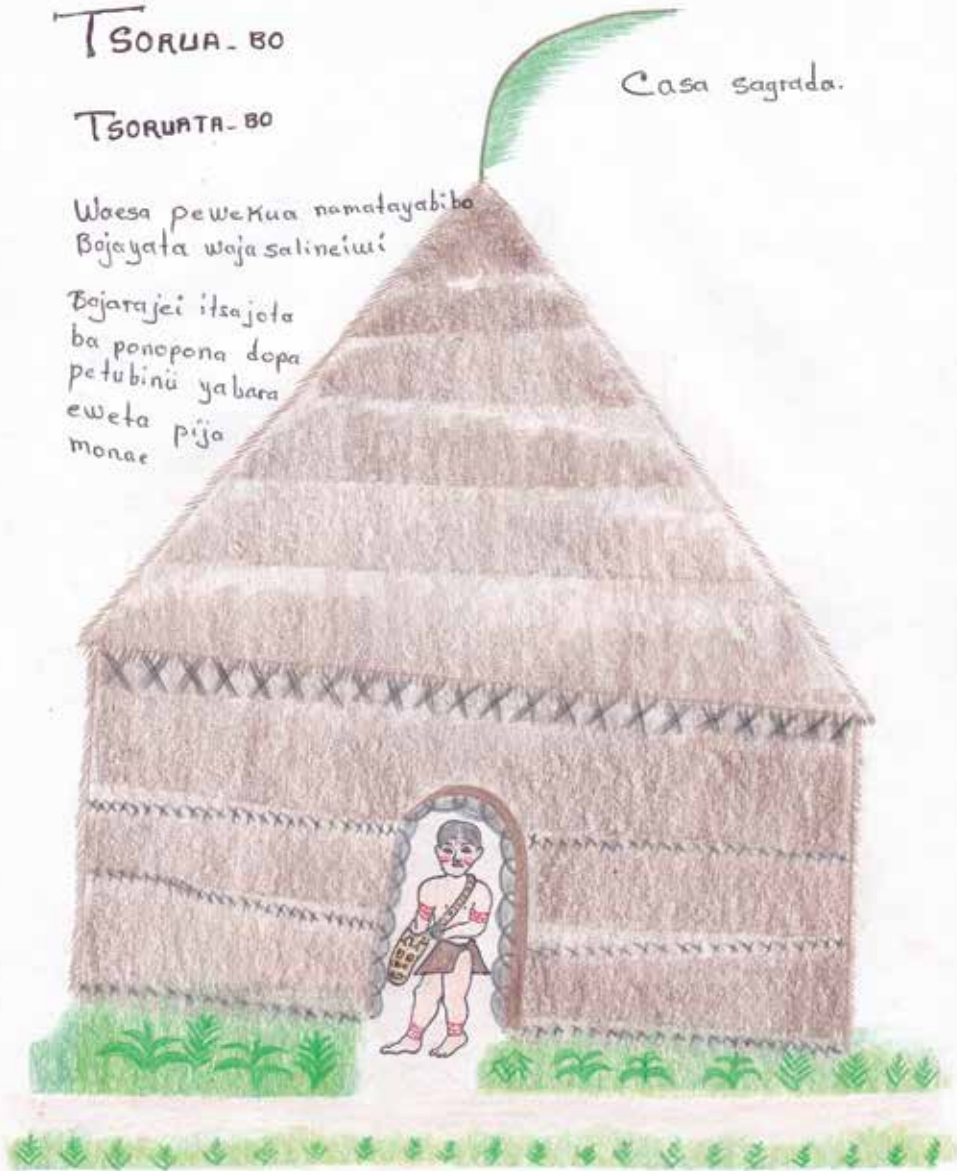 TSORUA_BO
Casa sagrada.
TSORUATA_BO
Waesa pewekua namatayabibo
Bajayata waja salineiwi
Bajarajei itsajota
ba ponopona dopa
petubinü yabara
eweta pija
monae